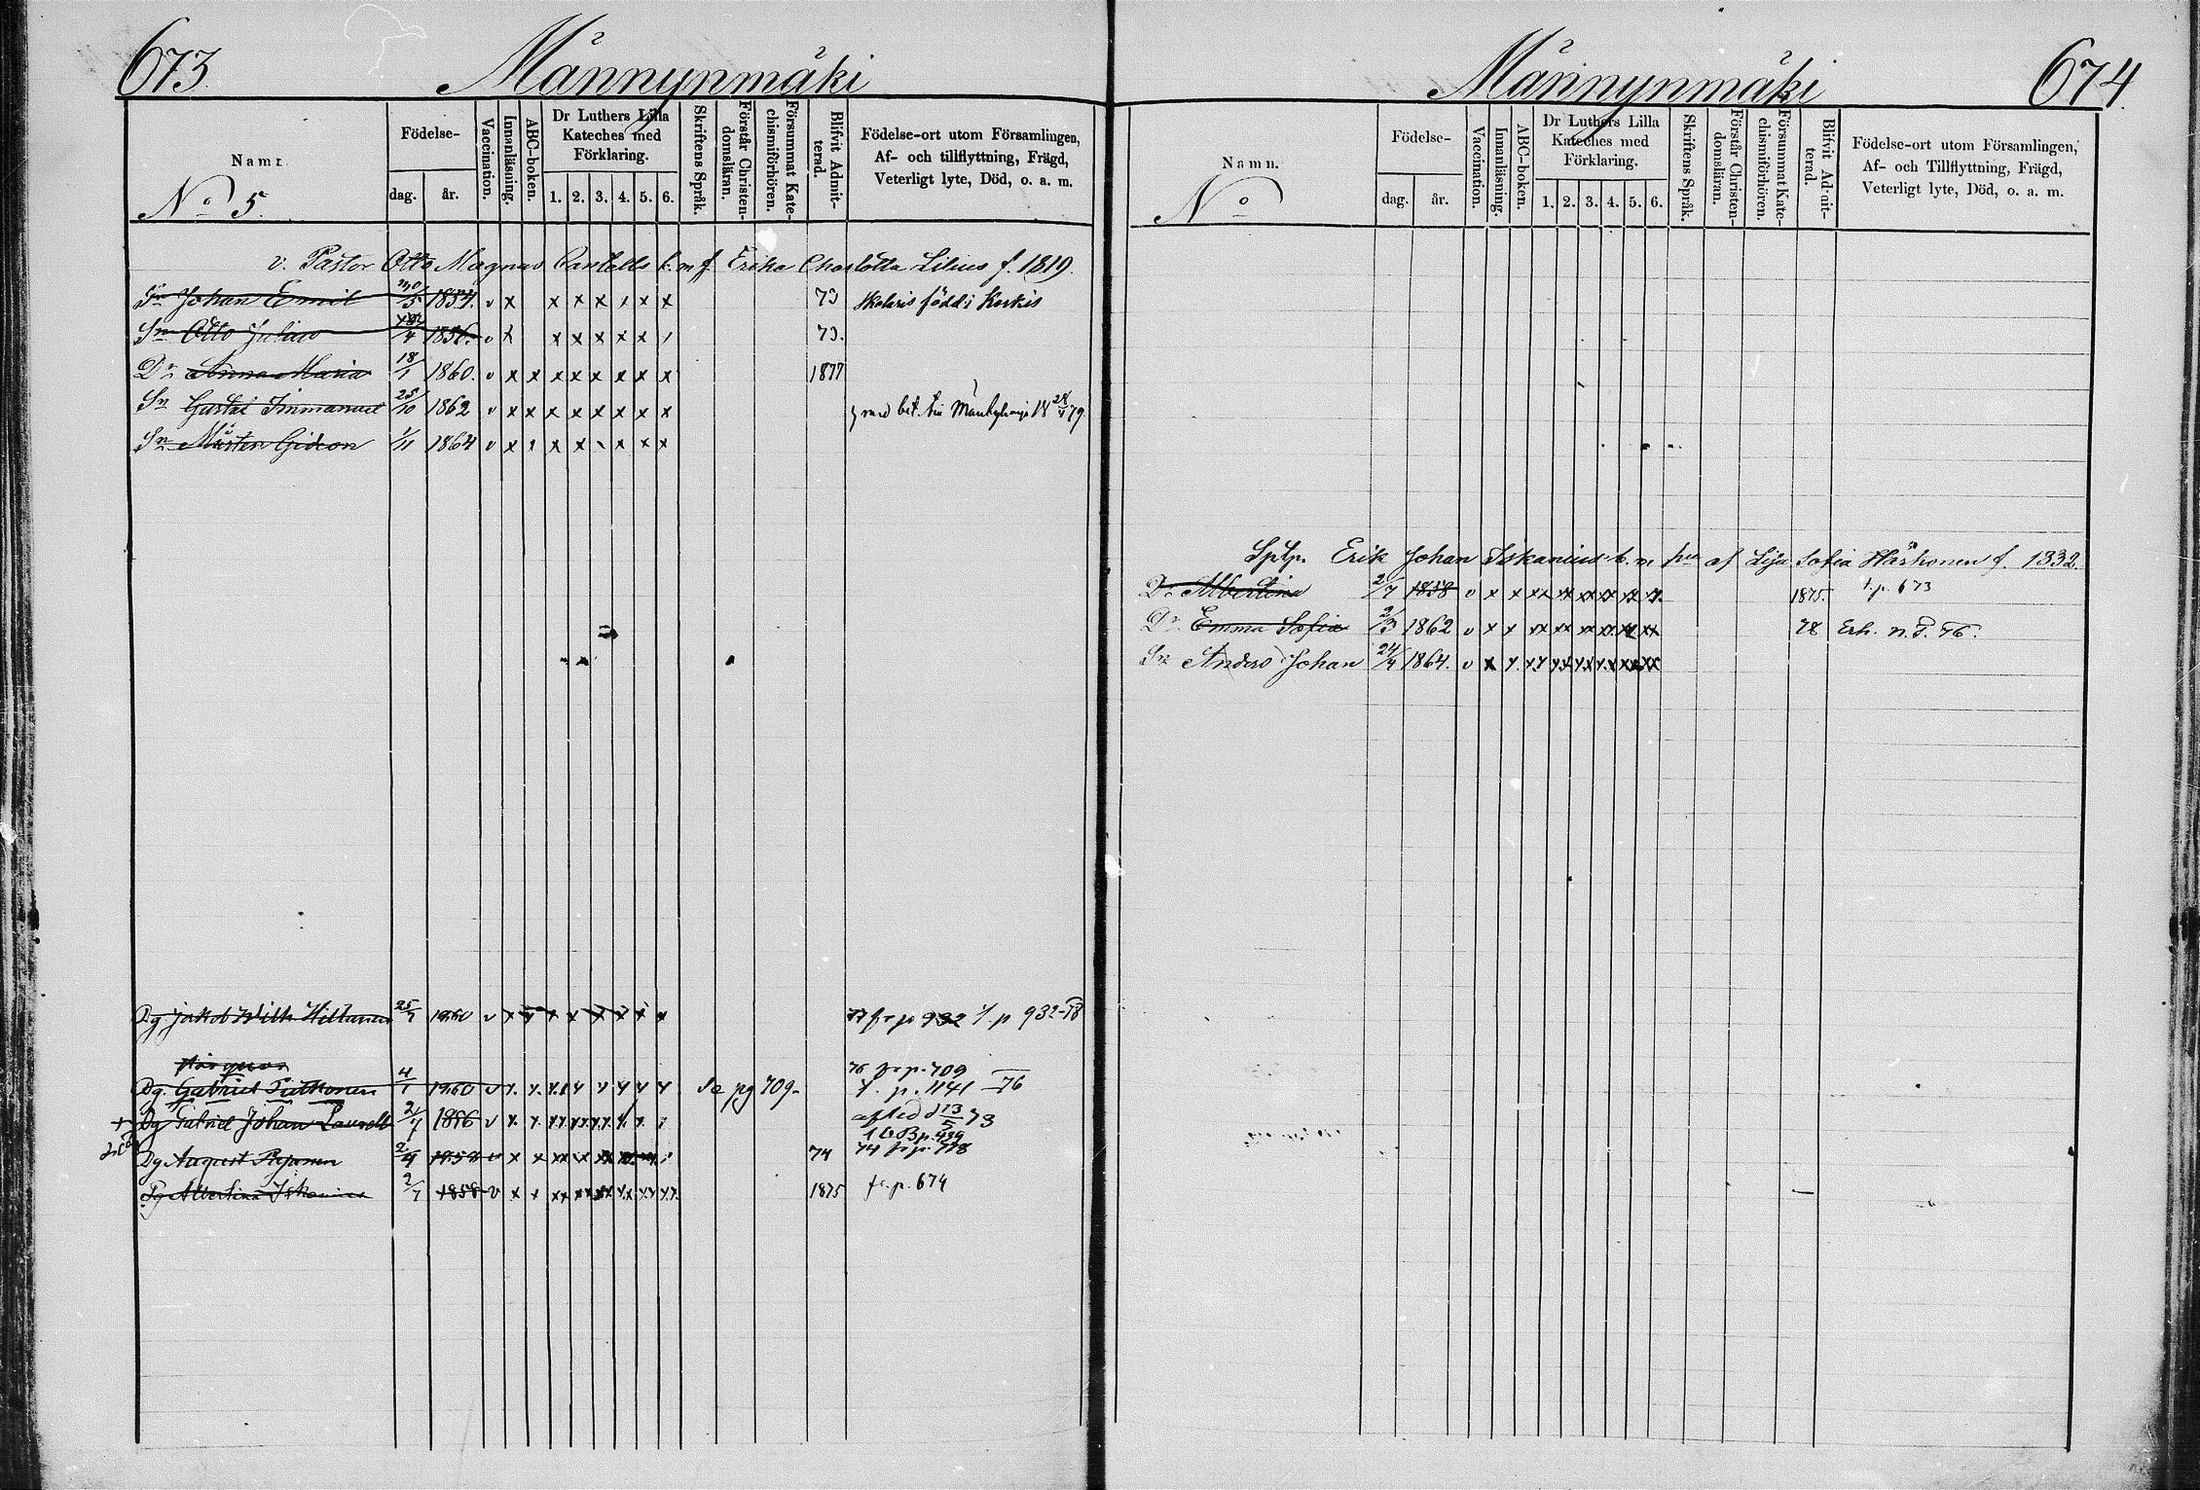 673
Männynmäki
Namn.
Födelse-
dag.
år.
Vaccination.
Innanläsning.
ABC-boken.
Dr Luthers Lilla
Kateches med
Förklaring.
1. 2. 3. 4. 5. 6.
Skriftens Språk.
Förstår Christen-
domsläran.
Försummat Kate-
chismiförhören.
Blifvit Admit-
terad.
Födelse-ort utom Församlingen,
Af- och tillflyttning, Frägd,
Veterligt lyte, Död, o. a. m.
No 5.
v. Pastor Otto Magnus Cantells k. m f. Erika Charlotta Lilius f. 1819.
Sn Johan Emil 30/5 1854. v x x x x x x x 73 skolaris född i Karkis
Sn Otto Julius 1856. v x x x x x x 73.
Dr Anna Maria 18/1 1860. v x x x x x x x x 1877
Sn Gustaf Immanuel 25/10 1862 v x x x x x x x x med bet. 79.
Sn Mårten Gideon 1/11 1864 v x x x x x x x
Dg Jakob Wilh. Hiltunen 25/7 1860 v x x x x x x x x 77 fr p 932 t. p 932-78
Dg. Gabriel Tuthonen 4/1 1860 v x. x. x x x x x x se pg 709- 76 fr p. 709
t. p. 1141 76
Dg Gabriel Johan Laurell 2/7 1856 v x x. afled d 13/5 73
Dg August Pajanen 1858 v x x 74 74 fr p. 778
Pg Albertina Iskanius 2/7 1858 v x x 1875 fr. p. 674
674.
Männynmäki
Namn.
Födelse-
dag.
år.
Vaccination.
Innanläsning.
ABC-boken.
Dr Luthers Lilla
Kateches med
Förklaring.
1. 2. 3. 4. 5. 6.
Skriftens Språk.
Förstår Christen-
domsläran.
Försummat Kate-
chismiförhören.
Blifvit Ad-ait-
terad.
Födelse-ort utom Församlingen,
Af- och Tillflyttning, Frägd,
Veterligt lyte, Död, o. a. m.
No
Sptp. Erik Johan Iskanius k. m Lisa Sofia f. 1832.
Dr Albertina 2/7 1858 v x x xx xx xx xx xx xx. 1875. t. p. 673
Dr Emma Sofia 2/3 1862 v x x xx xx xx xx xx xx 78 Erh. n. P. 76.
Sn Anders Johan 24/4 1864. v x x xx xx xx xx xx xx